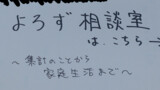 よろず相談室
は、こちら→
〜集計のことから
家庭生活まで〜